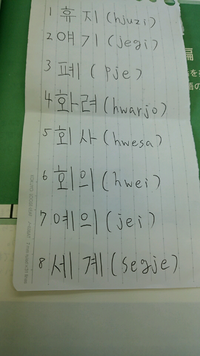 1 휴지 (hjuzi)
2 얘기 (jegi)
3 폐 (pje)
4 화려 (hwarjo)
5 회사 (hwesa)
6 회의 (hwei)
7 예의 (jei)
8 세계 (segje)